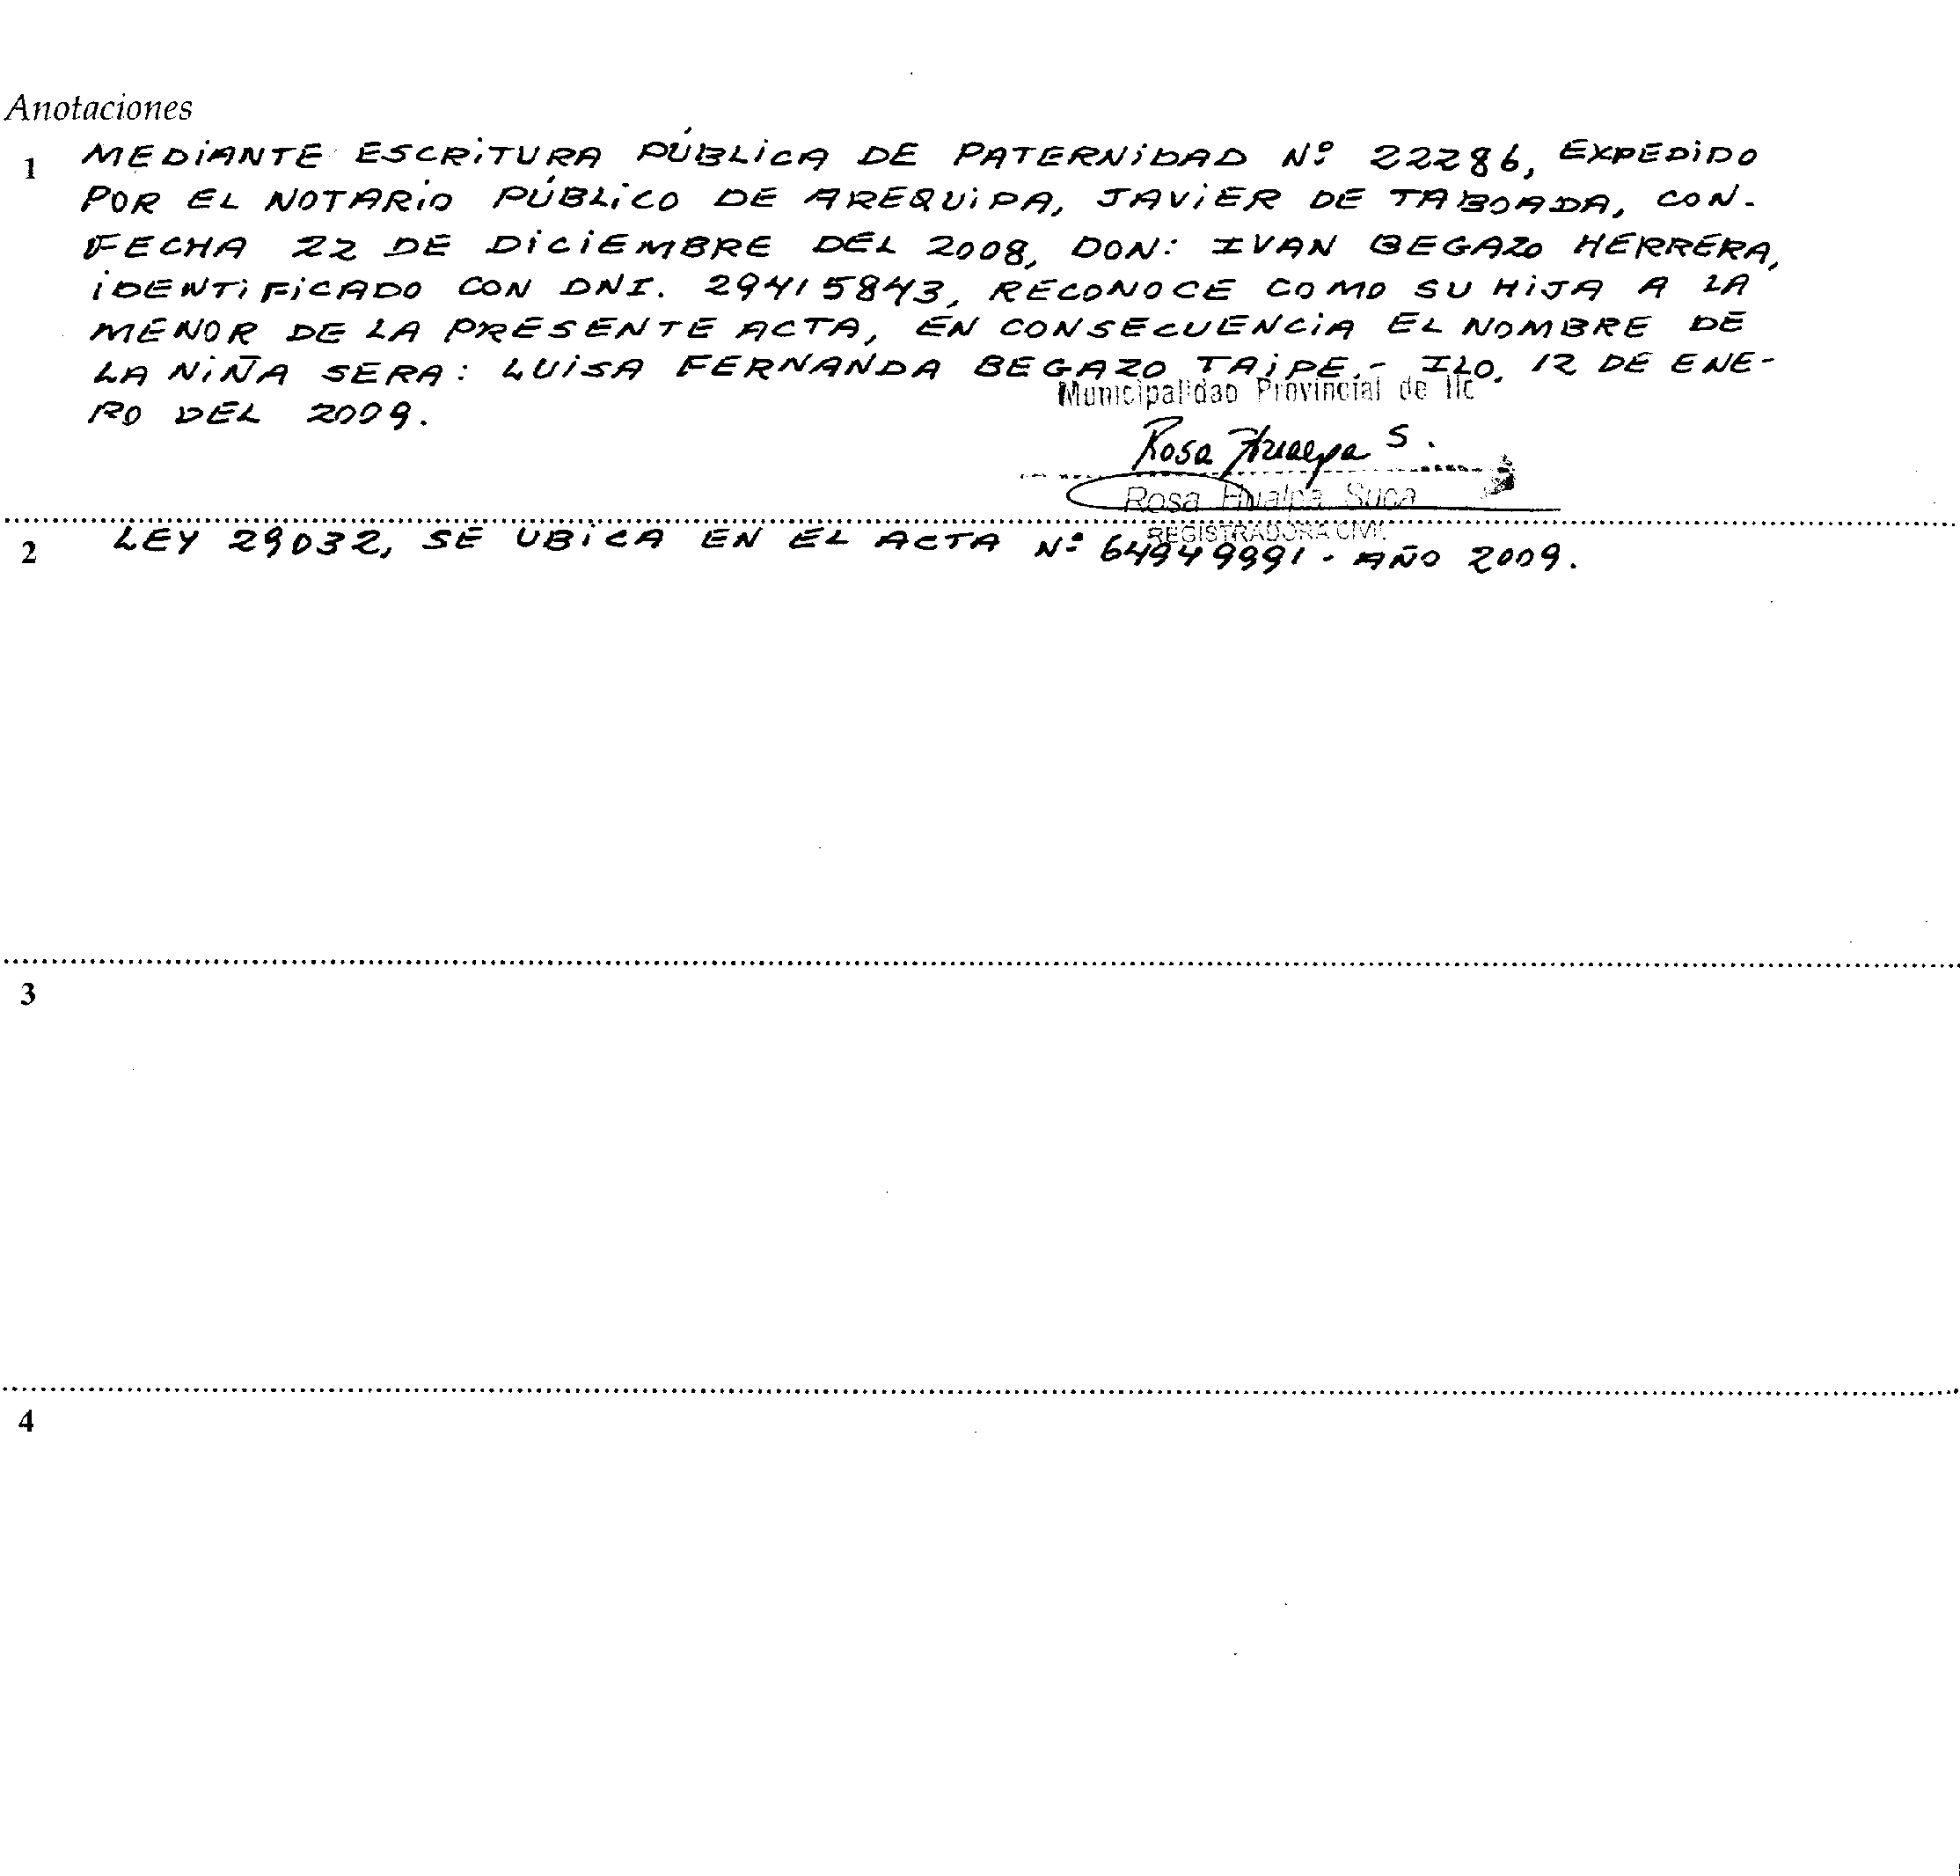 Anotaciones
1 MEDIANTE ESCRITURA PÚBLICA DE PATERNIDAD Nº 22286, EXPEDIDO
POR EL NOTARIO PÚBLICO DE AREQUIPA, JAVIER DE TABOADA, CON-
FECHA 22 DE DICIEMBRE DEL 2008, DON: IVAN BEGAZO HERRERA,
IDENTIFICADO CON DNI. 29415843, RECONOCE COMO SU HIJA A LA
MENOR DE LA PRESENTE ACTA, EN CONSECUENCIA EL NOMBRE DE
LA NIÑA SERA: LUISA FERNANDA BEGAZO TAIPE.- ILO, 12 DE ENE-
RO DEL 2009.
Municipalidad Provincial de Ilo
Rosa Hualpa S.
Rosa Hualpa Suca
REGISTRADORA CIVIL
2 LEY 29032, SE UBICA EN EL ACTA Nº 64949991 - AÑO 2009.
3
4